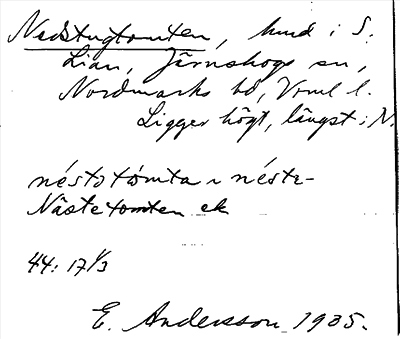 Nedstugtomten, hmd i S.
Lian, Järnskogs sn,
Nordmarks hd, Vrml l.
Ligger högt, längst i N.
néstotòmta ~ néste-
Nästetomten ek
44: 17 1/3
E. Andersson 1935.